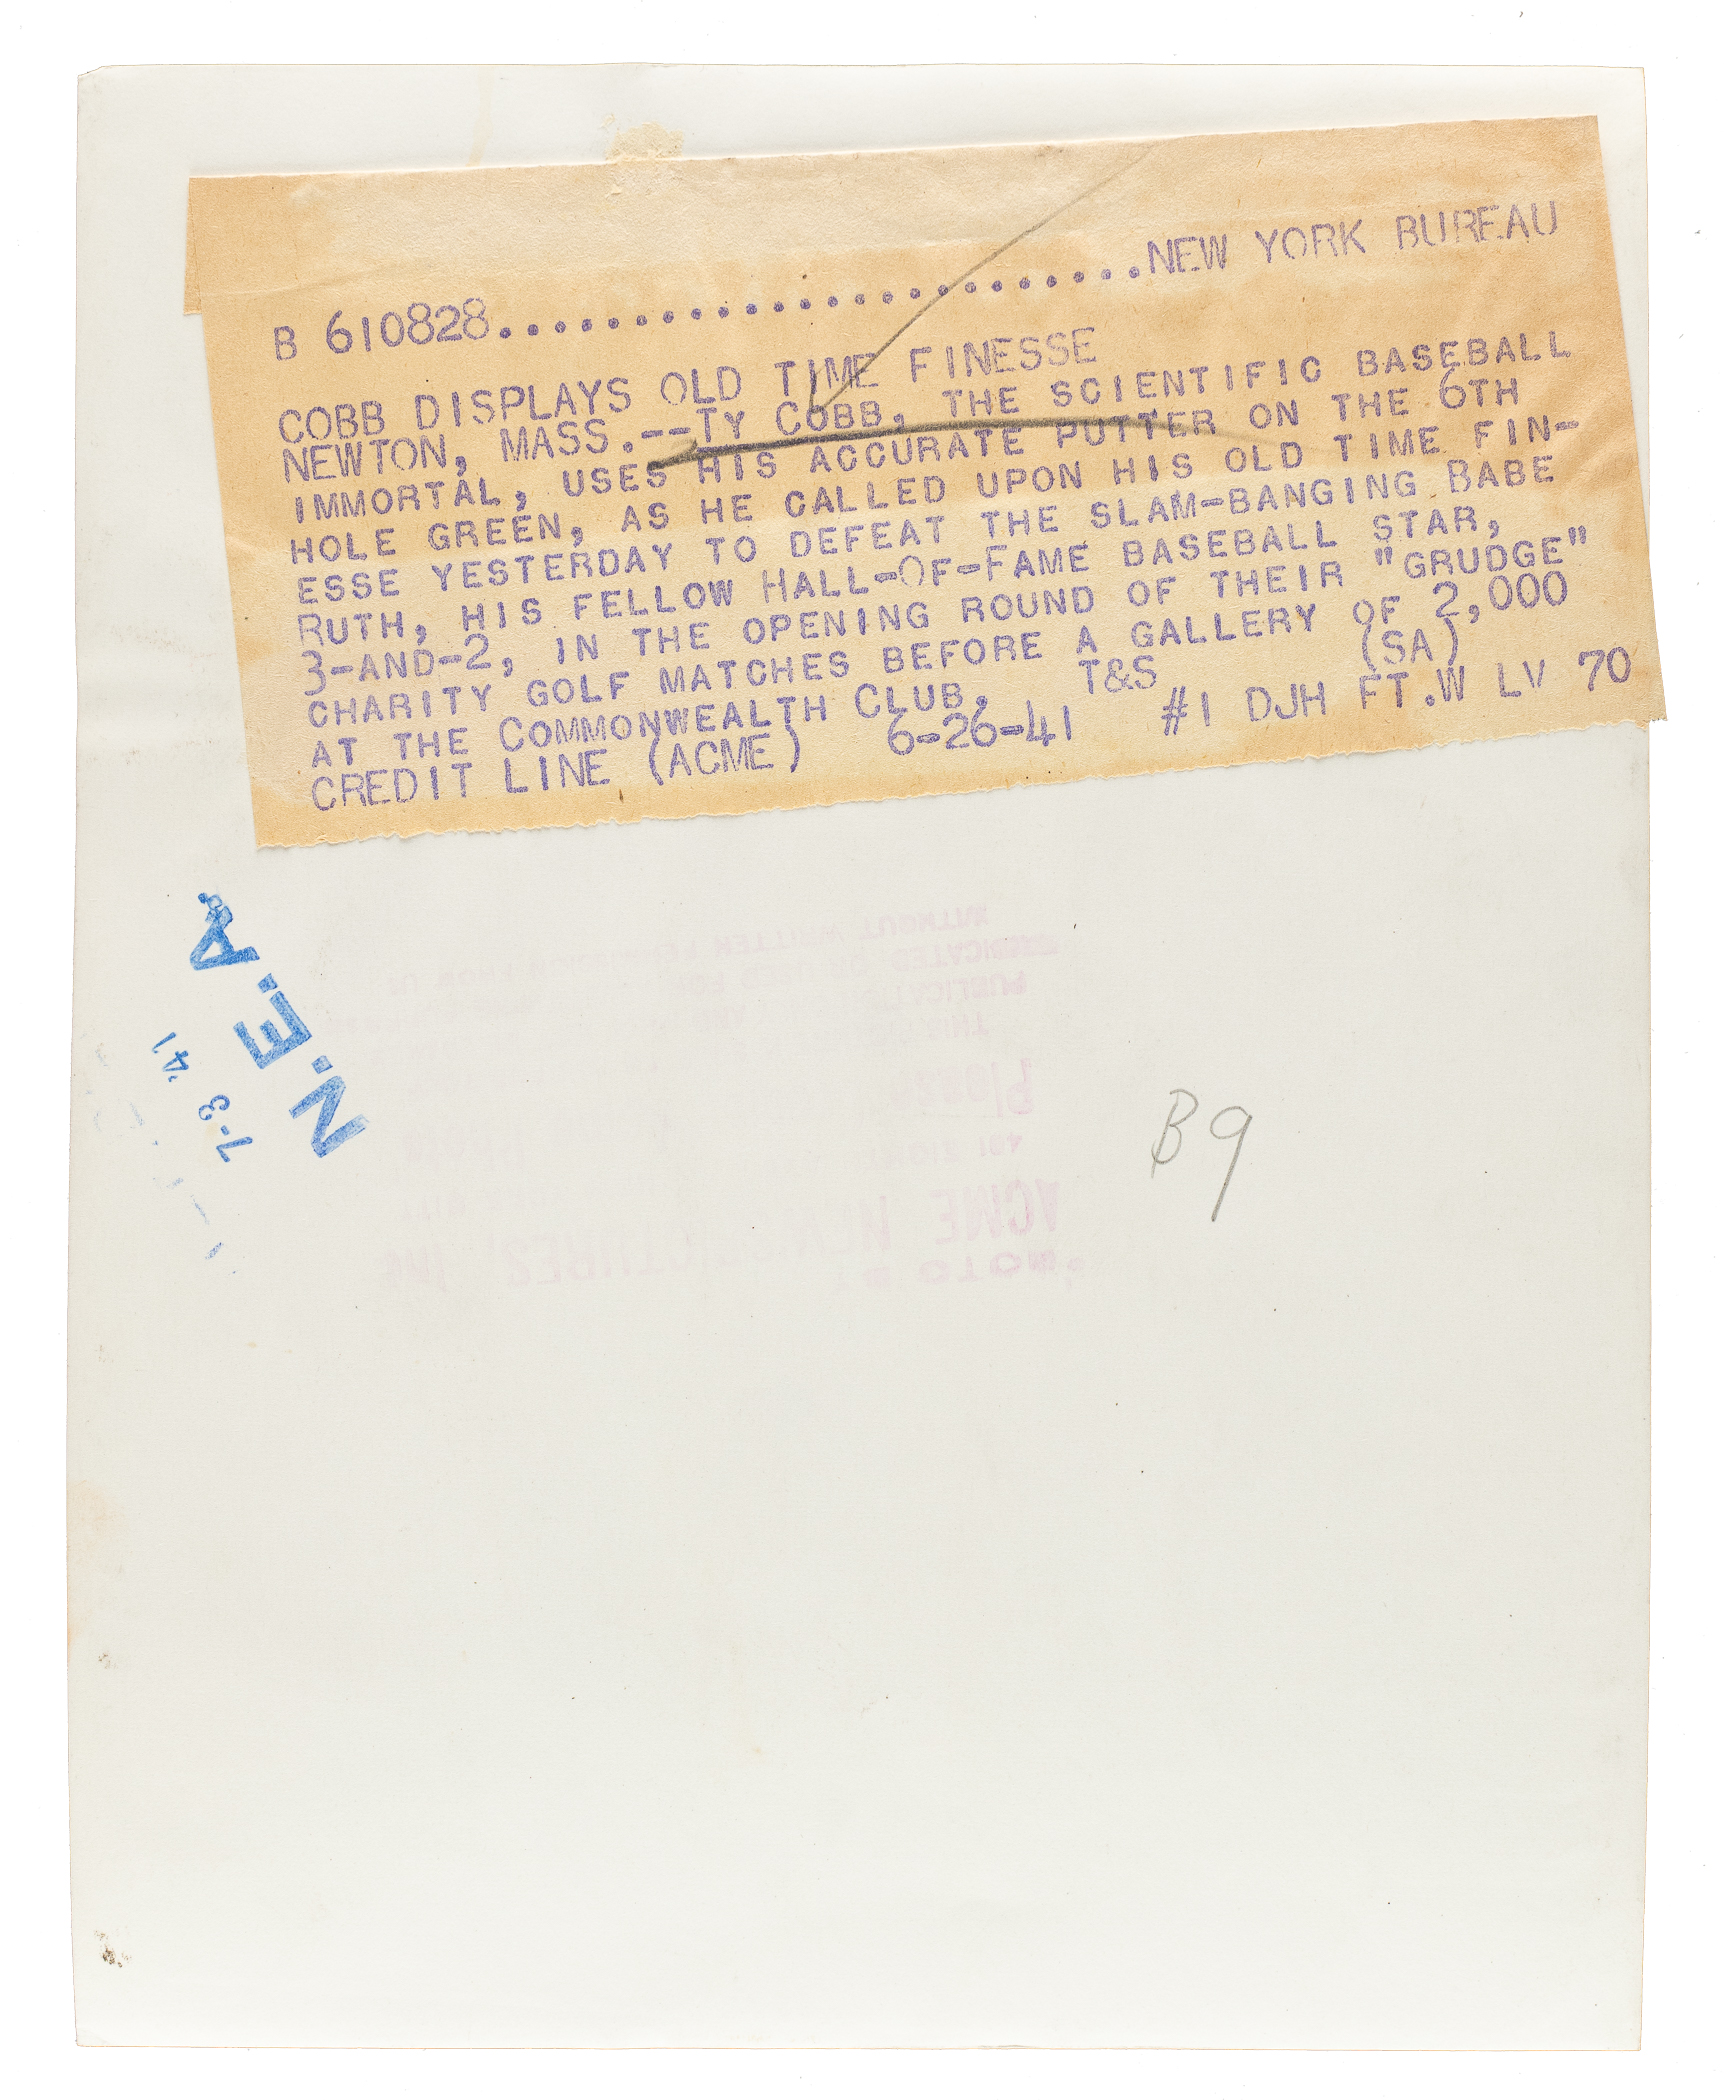 B 610828........................NEW YORK BUREAU
COBB DISPLAYS OLD TIME FINESSE
NEWTON, MASS.--TY COBB, THE SCIENTIFIC BASEBALL
IMMORTAL, USES HIS ACCURATE PUTTER ON THE 6TH
HOLE GREEN, AS HE CALLED UPON HIS OLD TIME FIN-
ESSE YESTERDAY TO DEFEAT THE SLAM-BANGING BABE
RUTH, HIS FELLOW HALL-OF-FAME BASEBALL STAR,
3-AND-2, IN THE OPENING ROUND OF THEIR "GRUDGE"
CHARITY GOLF MATCHES BEFORE A GALLERY OF 2,000
AT THE COMMONWEALTH CLUB. T&S (SA)
CREDIT LINE (ACME) 6-26-41 #1 DJH FT.W LV 70
N.E.A.
7-3 '41
WITHOUT WRITTEN
ACME
B9